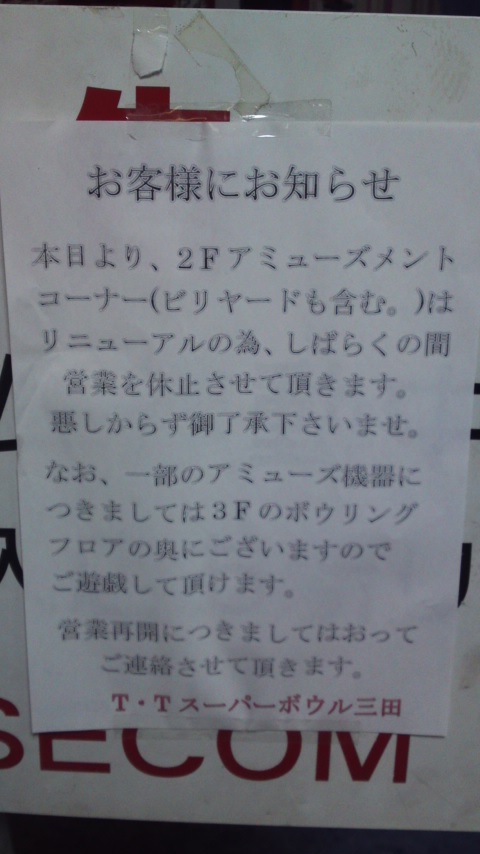 お客様にお知らせ
本日より、2Fアミューズメント
コーナー(ビリヤードも含む。)は
リニューアルの為、しばらくの間
営業を休止させて頂きます。
悪しからず御了承下さいませ。
なお、一部のアミューズ機器に
つきましては3Fのボウリング
フロアの奥にございますので
ご遊戯して頂けます。
営業再開につきましてはおって
ご連絡させて頂きます。
T・Tスーパーボウル三田
SECOM